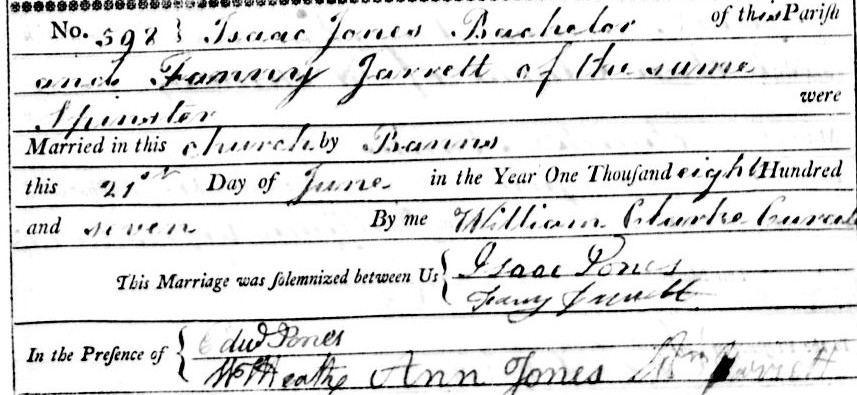 No. 598 } Isaac Jones Bachelor of this Parish
and Fanny Jarrett of the same
Spinster were
Married in this church by Banns
this 21st Day of June in the Year One Thousand eight Hundred
and seven By me William Clarke Curate
This Marriage was solemnized between Us { Isaac Jones
Fany Jarrett
In the Presence of { Edwd Jones
Wm Heath Ann Jones Wm Jarrett